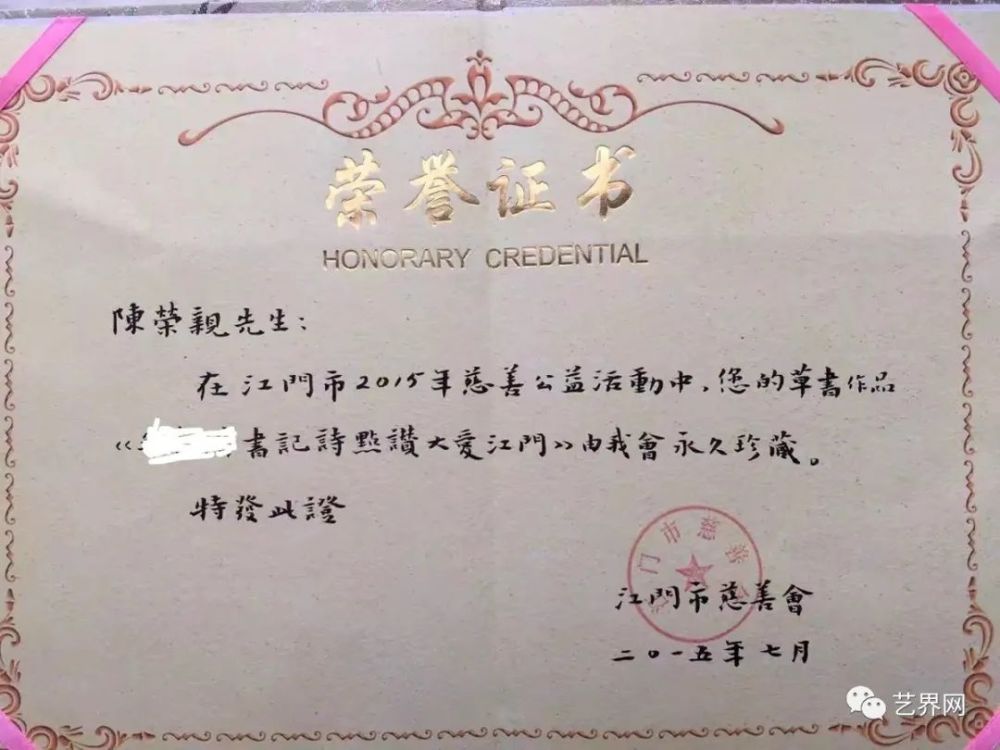 荣誉证书
HONORARY CREDENTIAL
陳榮親先生：
在江門市2015年慈善公益活動中，您的草書作品
《書記詩點讚大愛江門》由我會永久珍藏。
特發此證
门市慈善
江門市慈善會
二〇一五年七月
艺界网